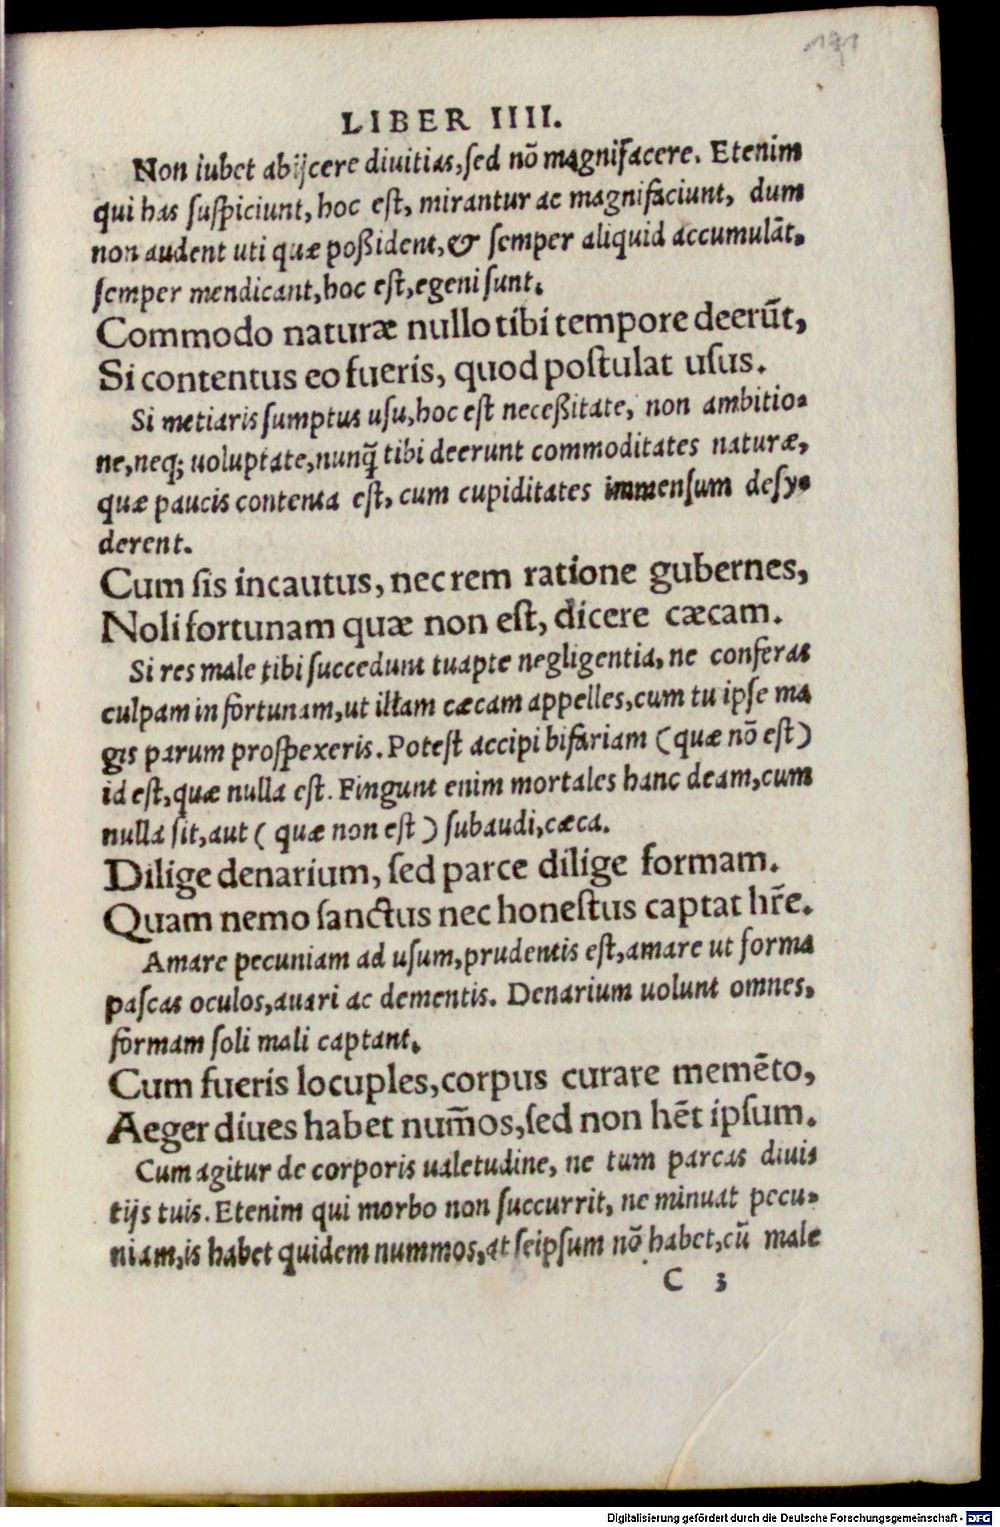 191
LIBER IIII.
Non iubet abijcere diuitias, sed nõ magnifacere. Etenim
qui has suspiciunt, hoc est, mirantur ac magnifaciunt, dum
non audent uti quæ poßident, & semper aliquid accumulãt,
semper mendicant, hoc est, egeni sunt.
Commodo naturæ nullo tibi tempore deerũt,
Si contentus eo fueris, quod postulat usus.
Si metiaris sumptus usu, hoc est neceßitate, non ambitio-
ne, neq; uoluptate, nunq̃ tibi deerunt commoditates naturæ,
quæ paucis contenta est, cum cupiditates immensum desy-
derent.
Cum sis incautus, nec rem ratione gubernes,
Noli fortunam quæ non est, dicere cæcam.
Si res male tibi succedunt tuapte negligentia, ne conferas
culpam in fortunam, ut illam cæcam appelles, cum tu ipse ma
gis parum prospexeris. Potest accipi bifariam (quæ nõ est)
id est, quæ nulla est. Fingunt enim mortales hanc deam, cum
nulla sit, aut ( quæ non est ) subaudi, cæca.
Dilige denarium, sed parce dilige formam.
Quam nemo sanctus nec honestus captat hr̃e.
Amare pecuniam ad usum, prudentis est, amare ut forma
pascas oculos, auari ac dementis. Denarium uolunt omnes,
formam soli mali captant.
Cum fueris locuples, corpus curare memẽto,
Aeger diues habet num̃os, sed non hẽt ipsum.
Cum agitur de corporis ualetudine, ne tum parcas diuis
tijs tuis. Etenim qui morbo non succurrit, ne minuat pecu-
niam, is habet quidem nummos, at seipsum nõ habet, cũ male
C 3
Digitalisierung gefördert durch die Deutsche Forschungsgemeinschaft - DFG